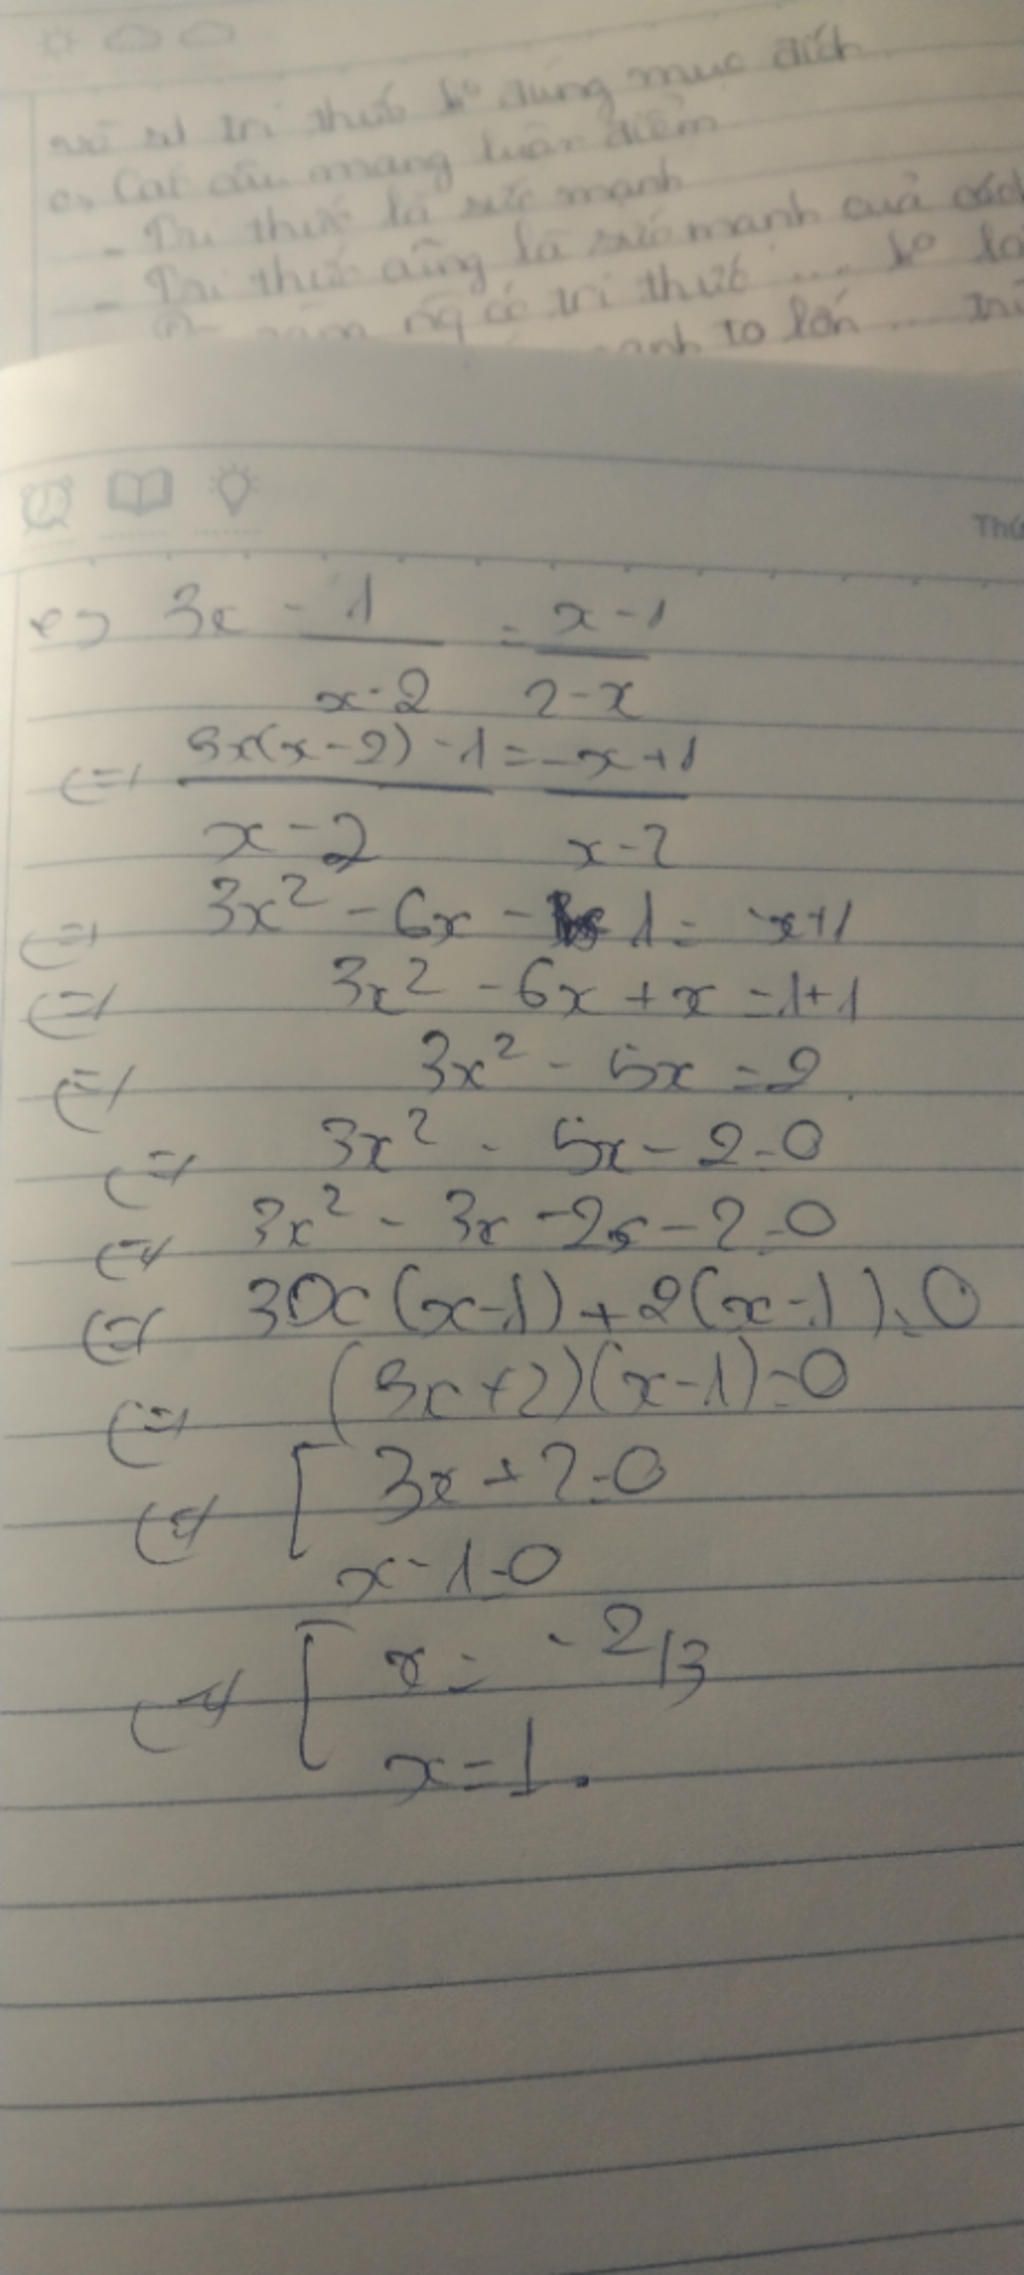 tri thức ko đúng mục đích
c, Các câu mang luận điểm
- Tri thức là sức mạnh
- Tri thức cũng là sức mạnh của cách
ng có tri thức ... ko
to lớn ...
Thứ
e, 3x - 1 = x - 1
x - 2 2 - x
(=) 3x(x - 2) - 1 = -x + 1
x - 2 x - 2
(=) 3x² - 6x - 1 = -x + 1
(=) 3x² - 6x + x = 1 + 1
(=) 3x² - 5x = 2
(=) 3x² - 5x - 2 = 0
(=) 3x² - 3x - 2x - 2 = 0
(=) 3x(x - 1) + 2(x - 1) = 0
(=) (3x + 2)(x - 1) = 0
(=) [ 3x + 2 = 0
x - 1 = 0
(=) [ x = -2/3
x = 1.